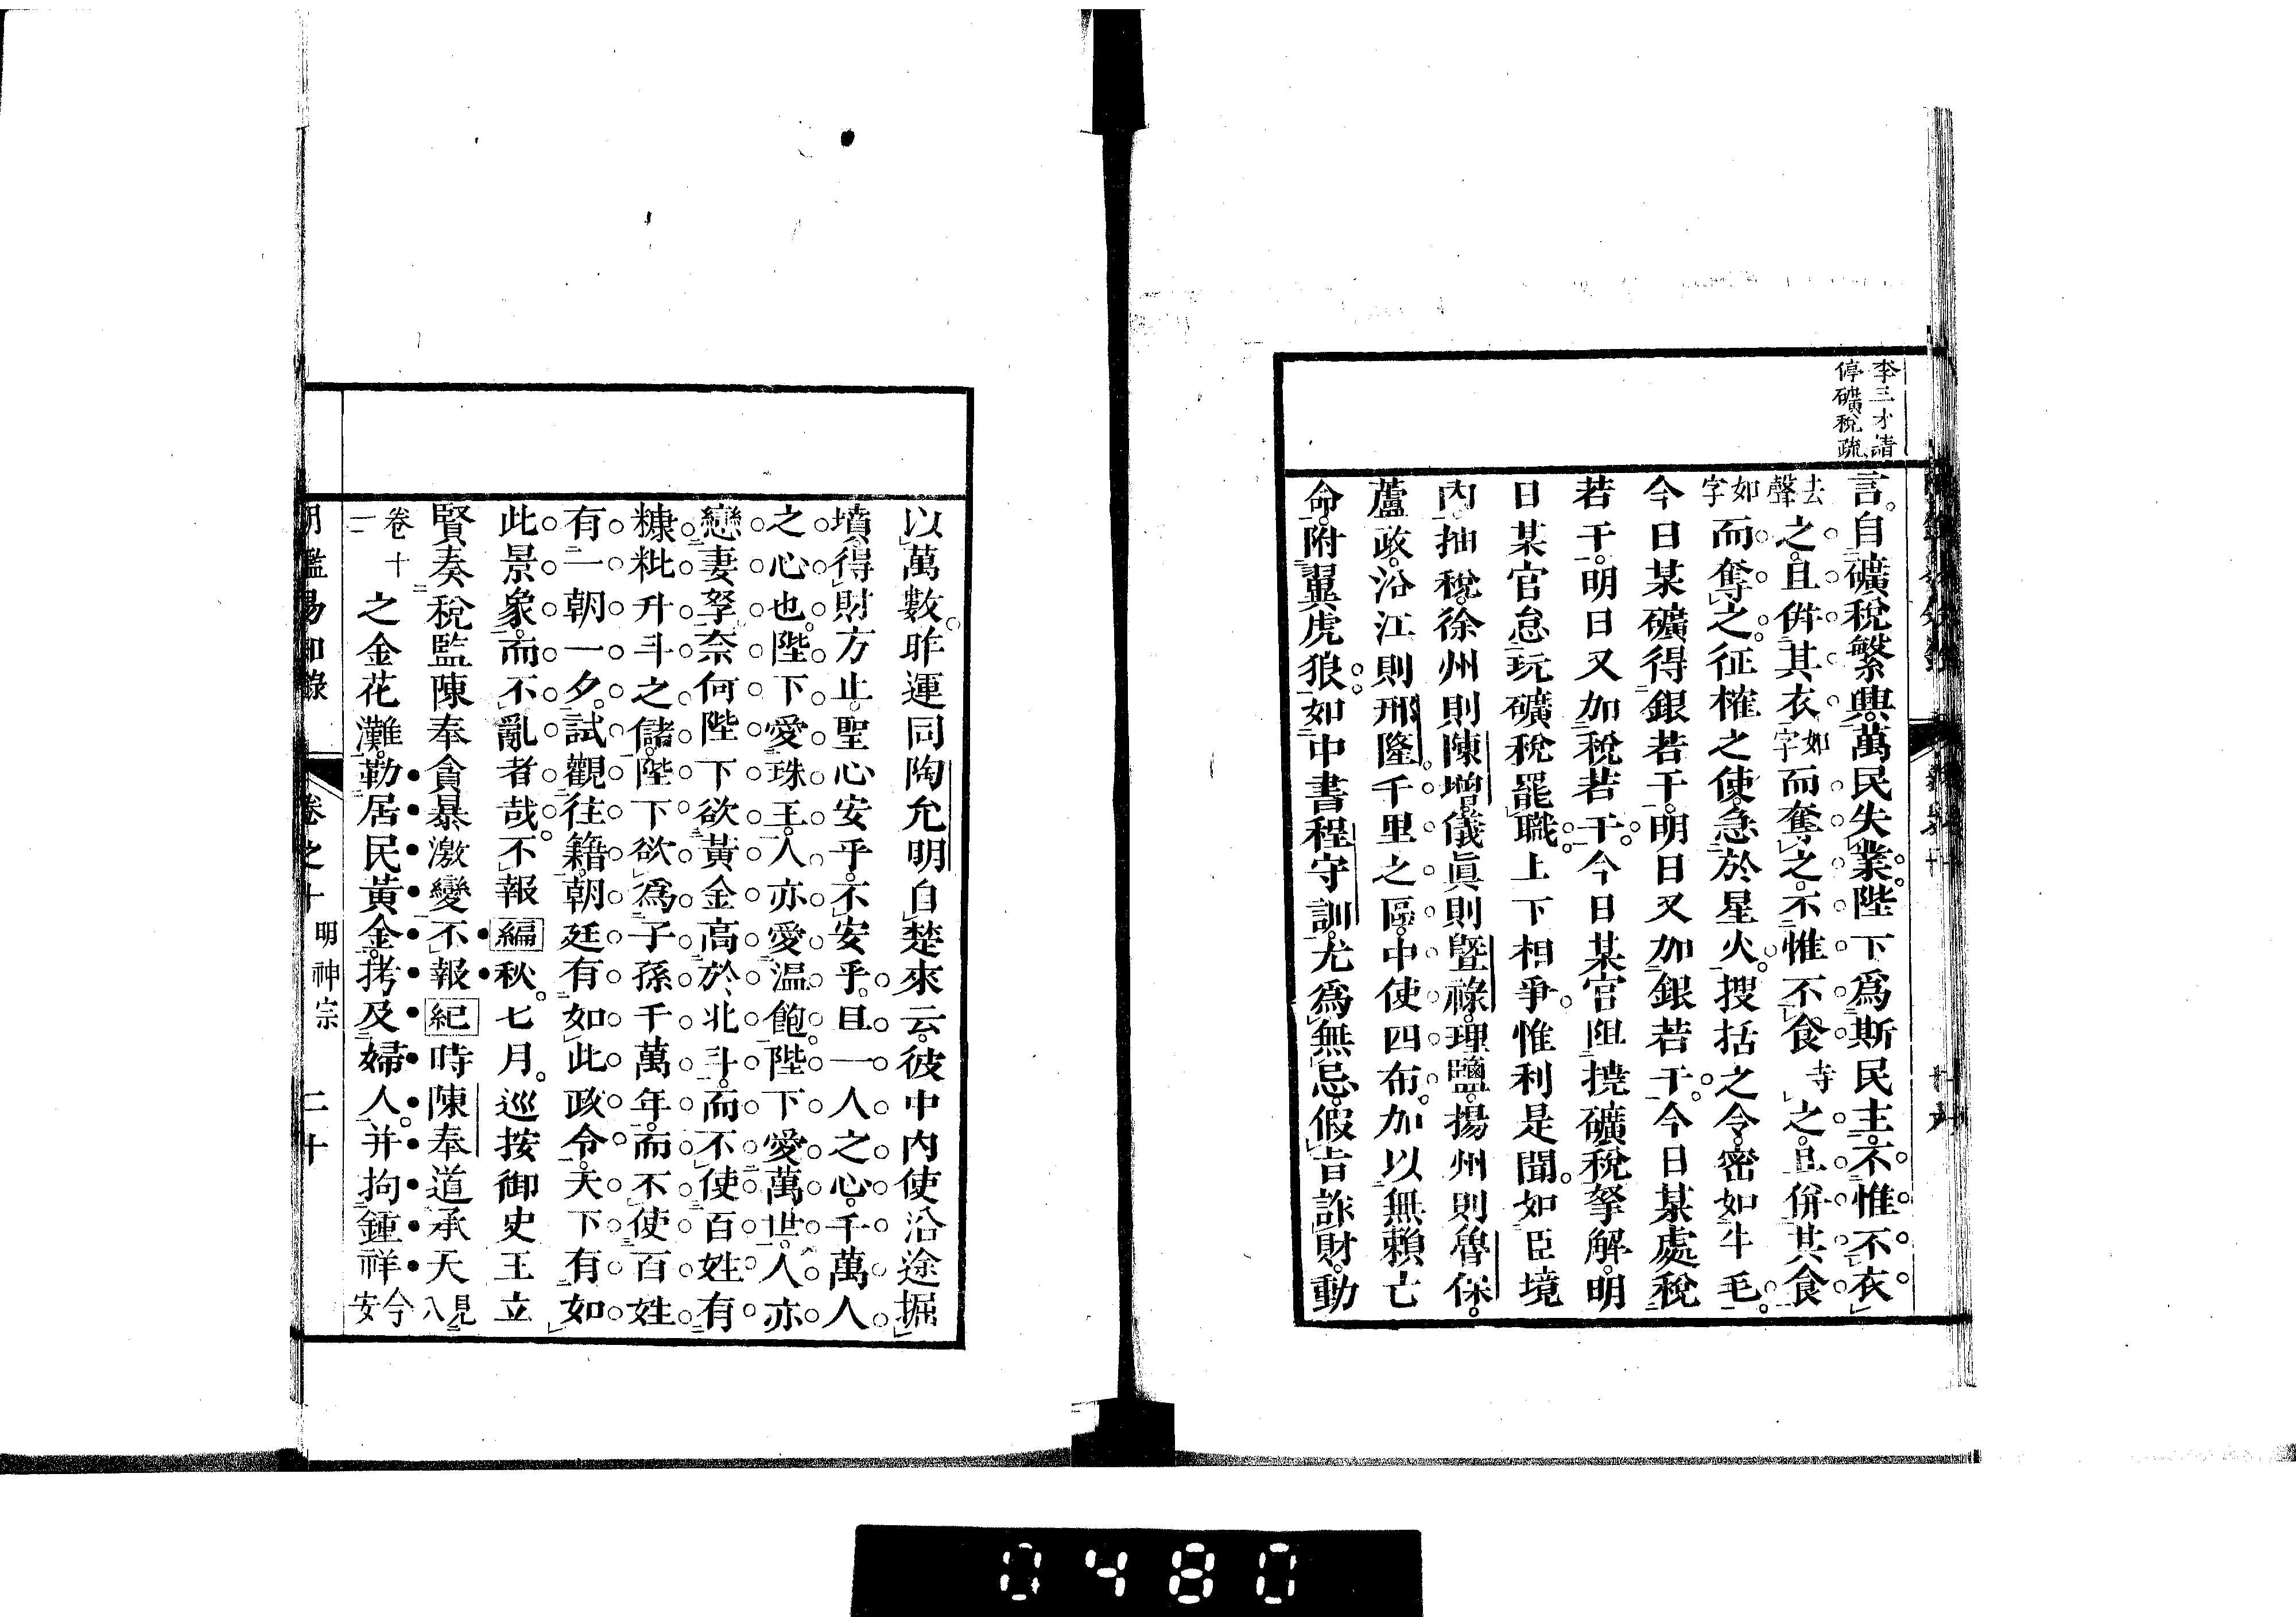 李三才請
停礦稅疏
言。自礦稅繁興。萬民失業。陛下爲斯民主。不惟不衣
去聲之。且併其衣如字而奪之。不惟不食寺之。且併其食
如字而奪之。征榷之使。急於星火。搜括之令。密如牛毛。
今日某礦得銀若干。明日又加銀若干。今日某處稅
若干。明日又加稅若干。今日某官阻撓礦稅拏解。明
日某官怠玩礦稅罷職。上下相爭。惟利是聞。如臣境
內抽稅。徐州則陳增。儀眞則曁祿。理鹽。揚州則魯保。
蘆政。沿江則邢隆。千里之區。中使四布。加以無賴亡
命。附翼虎狼。如中書程守訓。尤爲無忌。假旨詐財。動
以萬數。昨運同陶允明自楚來云。彼中內使沿途掘
墳。得財方止。聖心安乎。不安乎。且一人之心。千萬人
之心也。陛下愛珠玉。人亦愛溫飽。陛下愛萬世。人亦
戀妻孥。奈何陛下欲黃金高於北斗。而不使百姓有
糠粃升斗之儲。陛下欲爲子孫千萬年。而不使百姓
有一朝一夕。試觀往籍。朝廷有如此政令。天下有如
此景象。而不亂者哉。不報編秋。七月。巡按御史王立
賢奏稅監陳奉貪暴激變不報紀時陳奉道承天見八
卷十二之金花灘。勒居民黃金。拷及婦人。并拘鍾祥今安
明鑑易知錄 卷之十 明神宗 二十
0480